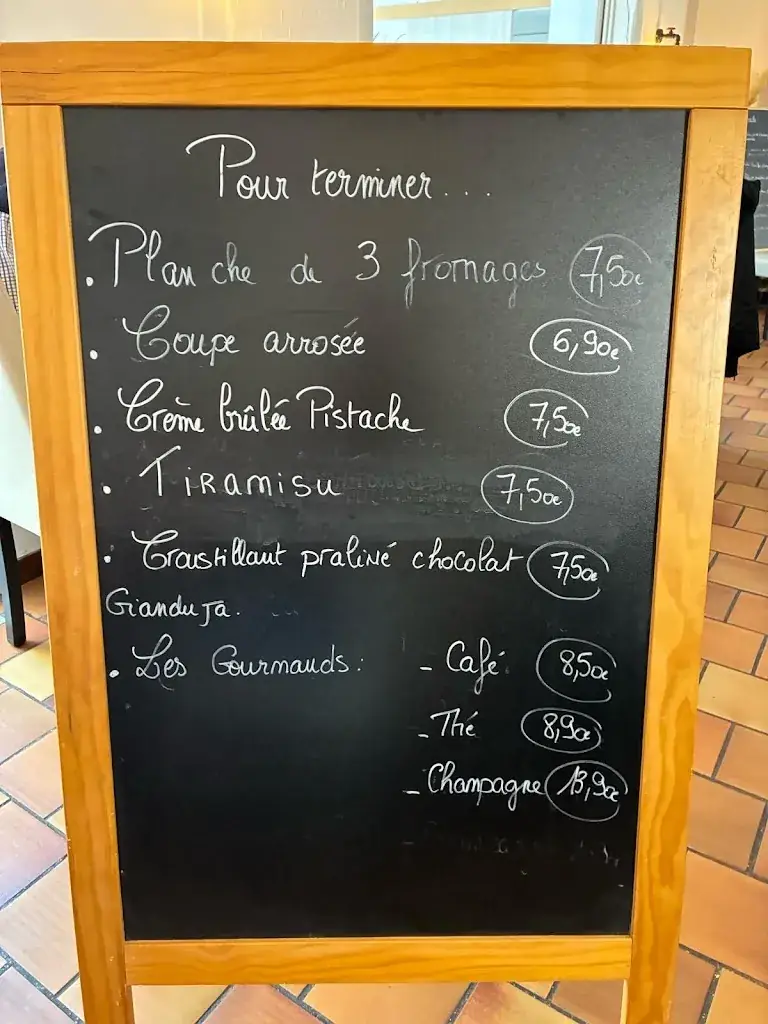 Pour terminer...
. Planche de 3 fromages 7,50€
. Coupe arrosée 6,90€
. Crème brûlée Pistache 7,50€
. TIRAMISU 7,50€
. Croustillant praliné chocolat 7,50€
Gianduja.
. Les Gourmands: - Café 8,50€
- Thé 8,90€
- Champagne 13,90€